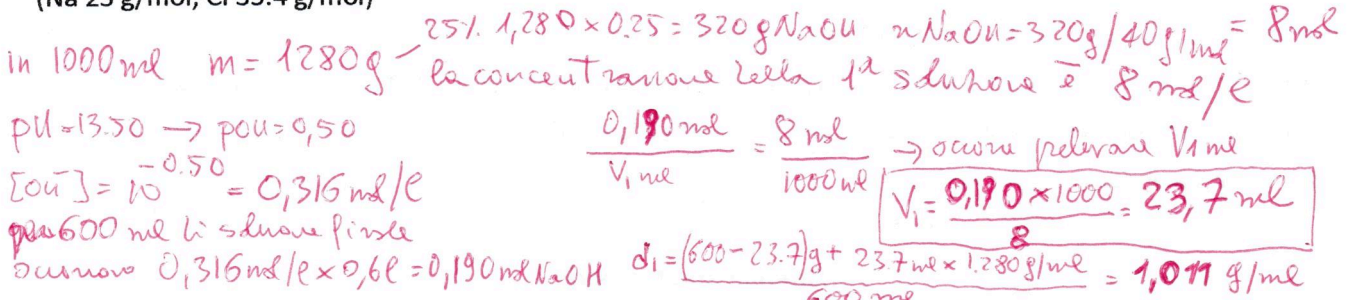 (Na 23 g/mol, Cl 35.4 g/mol)
25% 1,280 x 0.25 = 320 g NaOH n NaOH = 320g/40g/mol = 8 mol
in 1000 ml m = 1280 g
la concentrazione della 1ª soluzione è 8 mol/l
pH = 13.50 → pOH = 0,50
[OH⁻] = 10^-0.50 = 0,316 mol/l
per 600 ml di soluzione finale
occorrono 0,316 mol/l x 0,6 l = 0,190 mol NaOH
0,190 mol / V₁ ml = 8 mol / 1000 ml → occorre prelevare V₁ ml
V₁ = 0,190 x 1000 / 8 = 23,7 ml
d₁ = (600 - 23.7)g + 23.7 ml x 1.280 g/ml / 600 ml = 1,011 g/ml